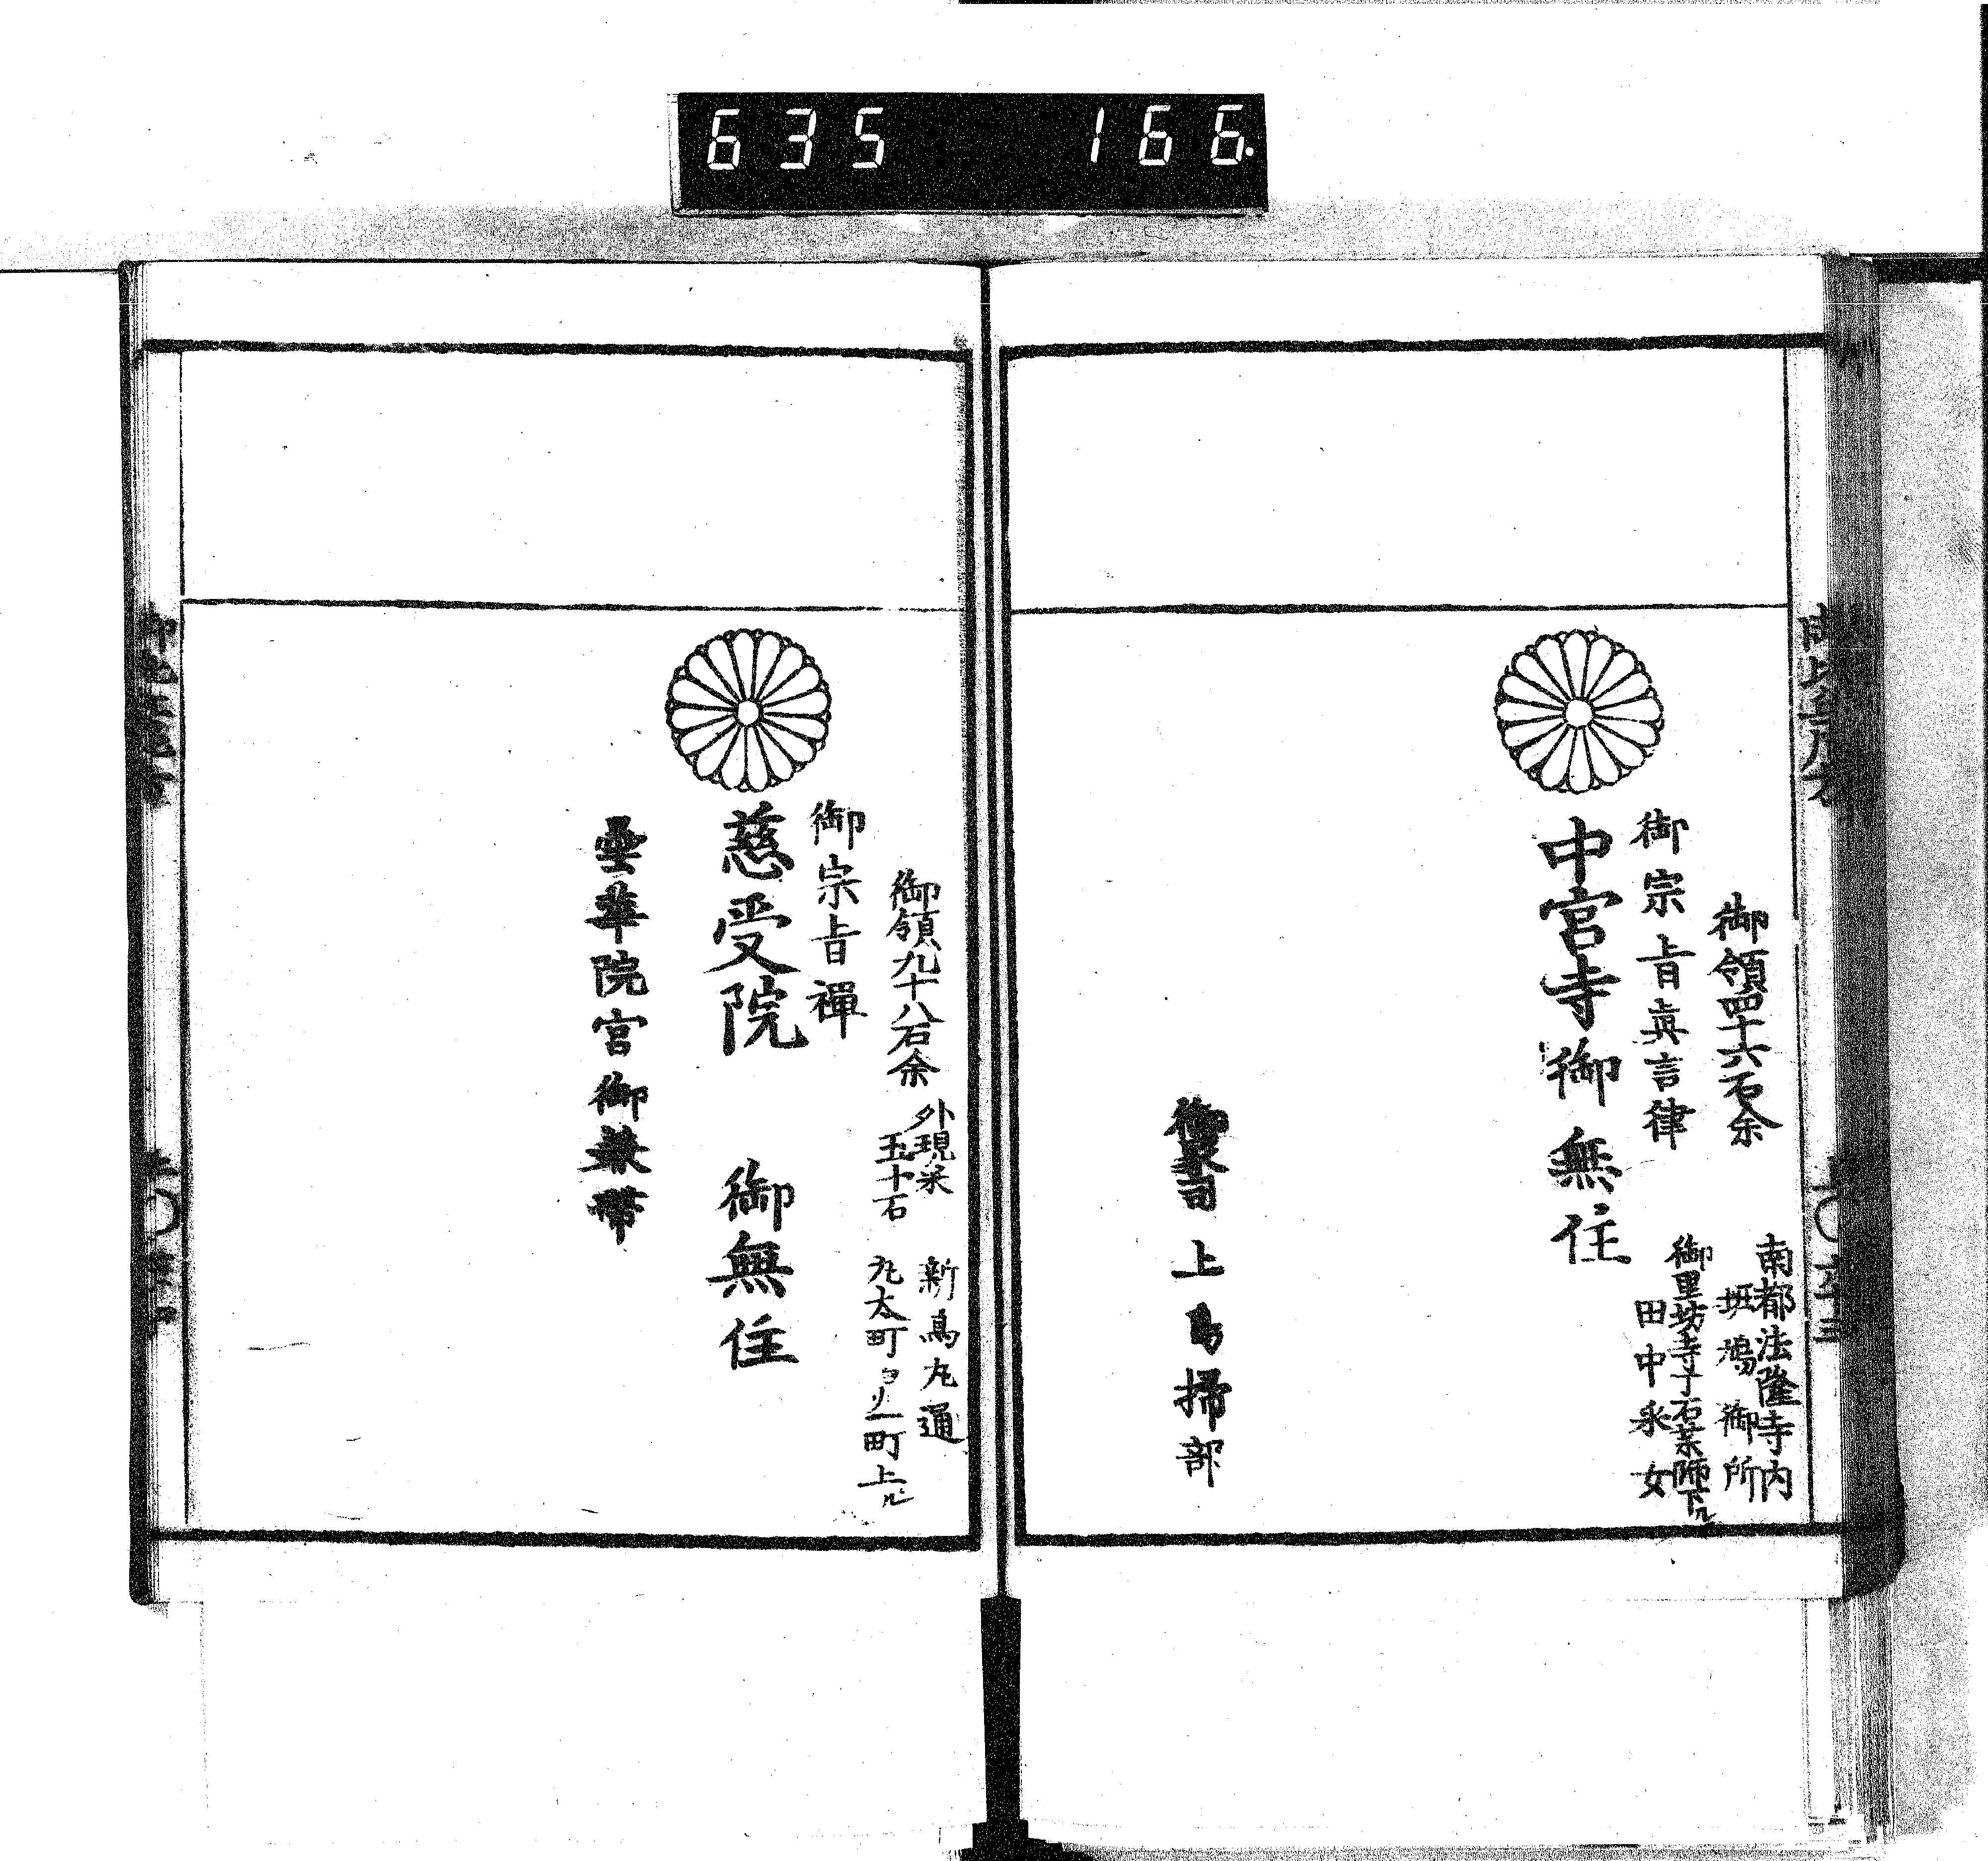 635 166.
御領四十六石余
南都法隆寺内
斑鳩御所
御里坊寺丁石薬師下ル
田中采女
御宗旨真言律
中宮寺御無住
上島掃部
御領九十八石余
外現米
五十石
新烏丸通
丸太町ヨリ一町上ル
御宗旨禅
慈受院 御無住
曇華院宮御兼帯